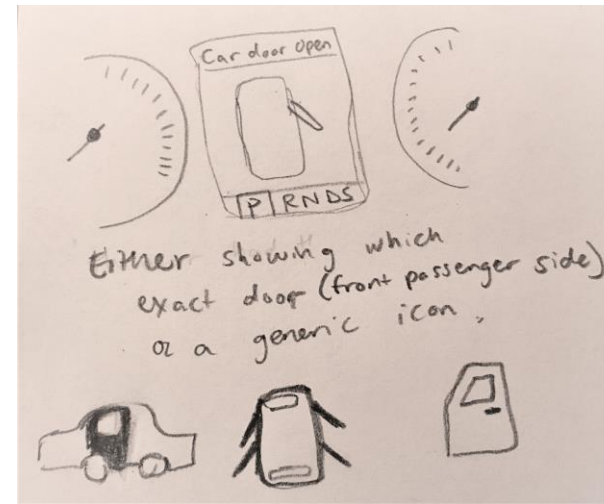 Car door open
P RNDS
Either showing which
exact door (front passenger side)
or a generic icon.